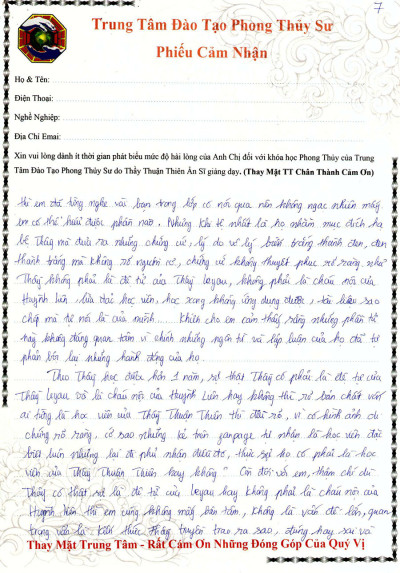 7
Trung Tâm Đào Tạo Phong Thủy Sư
Phiếu Cảm Nhận
Họ & Tên:
Điện Thoại:
Nghề Nghiệp:
Địa Chỉ Emai:
Xin vui lòng dành ít thời gian phát biểu mức độ hài lòng của Anh Chị đối với khóa học Phong Thủy của Trung
Tâm Đào Tạo Phong Thủy Sư do Thầy Thuận Thiên Ẩn Sĩ giảng dạy. (Thay Mặt TT Chân Thành Cảm Ơn)
thì em đã từng nghe vài bạn trong lớp có nói qua nên không ngạc nhiên mấy
em có thể hiểu được phần nào. Nhưng khi tệ nhất là họ nhằm mục đích hạ
bệ Thầy mà đưa ra những chứng cứ, lý do vô lý biến trắng thành đen, đen
thành trắng mà không rõ nguồn cơ, chứng cứ không thuyết phục rõ ràng như
Thầy không phải là đệ tử của Thầy beyau, không phải là cháu nội của
Huỳnh Liên, lừa đảo học viên, học xong không ứng dụng được, tài liệu sao
chép mà tự nói là của mình..... Khiến cho em cảm thấy rằng những phần tử
này không đáng quan tâm vì chính những ngôn từ và lập luận của họ đã tự
phản bội lại những hành động của họ.
Theo Thầy học được hơn 1 năm, sự thật Thầy có phải là đệ tử của
Thầy beyau và là cháu nội của Huỳnh Liên hay không thì rõ bản chất với
ai từng là học viên của Thầy Thuận Thiên thì đều rõ, vì có hình ảnh và
chứng cứ rõ ràng, cớ sao những kẻ trên fanpage tự nhận là học viên đặt
biệt luôn nhưng lại đi phủ nhận điều đó, thực sự họ có phải là học
viên của Thầy Thuận Thiên hay không? Còn đối với em, thậm chí dù
Thầy có thật sự là đệ tử của beyau hay không phải là cháu nội của
Huỳnh Liên thì em cũng không mấy bận tâm, không là vấn đề lớn, quan
trọng vẫn là kiến thức Thầy truyền trao ra sao, đúng hay sai và
Thay Mặt Trung Tâm - Rất Cám Ơn Những Đóng Góp Của Quý Vị